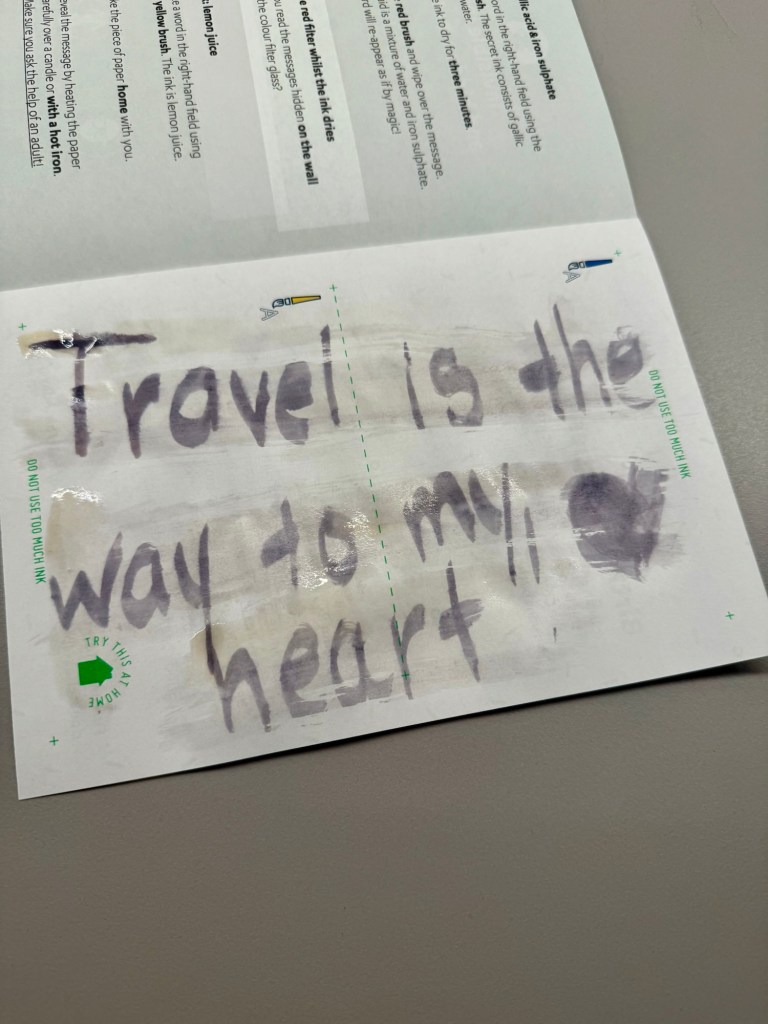 llic acid & iron sulphate
ord in the right-hand field using the
sh. The secret ink consists of gallic
water.
ink to dry for three minutes.
red brush and wipe over the message.
id is a mixture of water and iron sulphate.
rd will re-appear as if by magic!
e red filter whilst the ink dries
u read the messages hidden on the wall
the colour filter glass?
: lemon juice
e a word in the right-hand field using
yellow brush. The ink is lemon juice.
ke the piece of paper home with you.
eveal the message by heating the paper
arefully over a candle or with a hot iron.
Make sure you ask the help of an adult!
A
A
Travel is the
way to my
heart
DO NOT USE TOO MUCH INK
DO NOT USE TOO MUCH INK
TRY THIS AT HOME